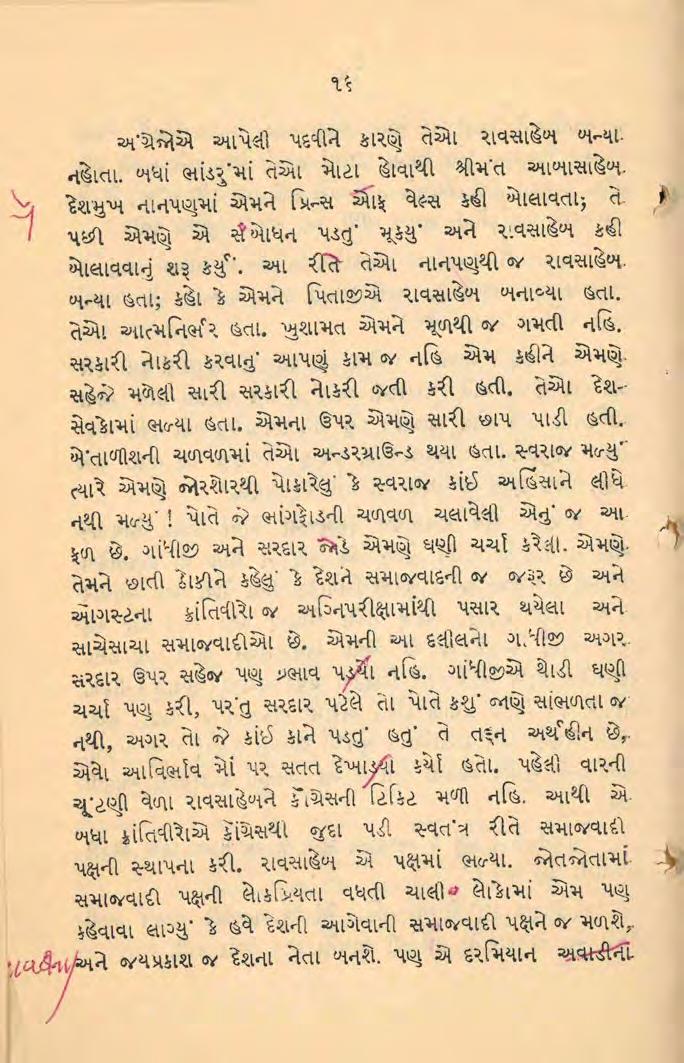 ૧૬
અંગ્રેજોએ આપેલી પદવીને કારણે તેઓ રાવસાહેબ બન્યા
નહોતા. બધાં ભાંડરુંમાં તેઓ મોટા હોવાથી શ્રીમંત આબાસાહેબ
દેશમુખ નાનપણમાં એમને પ્રિન્સ ઑફ વેલ્સ કહી બોલાવતા; તે
પછી એમણે એ સંબોધન પડતું મૂક્યું અને રાવસાહેબ કહી
બોલાવવાનું શરૂ કર્યું. આ રીતે તેઓ નાનપણથી જ રાવસાહેબ
બન્યા હતા; કહો કે એમને પિતાજીએ રાવસાહેબ બનાવ્યા હતા.
તેઓ આત્મનિર્ભર હતા. ખુશામત એમને મૂળથી જ ગમતી નહિ.
સરકારી નોકરી કરવાનું આપણું કામ જ નહિ એમ કહીને એમણે
સહેજે મળેલી સારી સરકારી નોકરી જતી કરી હતી. તેઓ દેશ-
સેવકોમાં ભળ્યા હતા. એમના ઉપર એમણે સારી છાપ પાડી હતી.
બેંતાળીશની ચળવળમાં તેઓ અન્ડરગ્રાઉન્ડ થયા હતા. સ્વરાજ મળ્યું
ત્યારે એમણે જોરશોરથી પોકારેલું કે સ્વરાજ કાંઈ અહિંસાને લીધે
નથી મળ્યું! પોતે જે ભાંગફોડની ચળવળ ચલાવેલી એનું જ આ
ફળ છે. ગાંધીજી અને સરદાર જોડે એમણે ઘણી ચર્ચા કરેલી. એમણે
તેમને છાતી ઠોકીને કહેલું કે દેશને સમાજવાદની જ જરૂર છે અને
ઑગસ્ટના ક્રાંતિવીરો જ અગ્નિપરીક્ષામાંથી પસાર થયેલા અને
સાચેસાચા સમાજવાદીઓ છે. એમની આ દલીલનો ગાંધીજી અગર
સરદાર ઉપર સહેજ પણ પ્રભાવ પડ્યો નહિ. ગાંધીજીએ થોડી ઘણી
ચર્ચા પણ કરી, પરંતુ સરદાર પટેલે તો પોતે કશું જાણે સાંભળતા જ
નથી, અગર તો જે કાંઈ કાને પડતું હતું તે તદ્દન અર્થહીન છે,
એવો આવિર્ભાવ મોં પર સતત દેખાડ્યા કર્યો હતો. પહેલી વારની
ચૂંટણી વેળા રાવસાહેબને કૉંગ્રેસની ટિકિટ મળી નહિ. આથી એ
બધા ક્રાંતિવીરોએ કૉંગ્રેસથી જુદા પડી સ્વતંત્ર રીતે સમાજવાદી
પક્ષની સ્થાપના કરી. રાવસાહેબ એ પક્ષમાં ભળ્યા. જોતજોતામાં
સમાજવાદી પક્ષની લોકપ્રિયતા વધતી ચાલી. લોકોમાં એમ પણ
કહેવાવા લાગ્યું કે હવે દેશની આગેવાની સમાજવાદી પક્ષને જ મળશે,
અને જયપ્રકાશ જ દેશના નેતા બનશે. પણ એ દરમિયાન અવાડીના